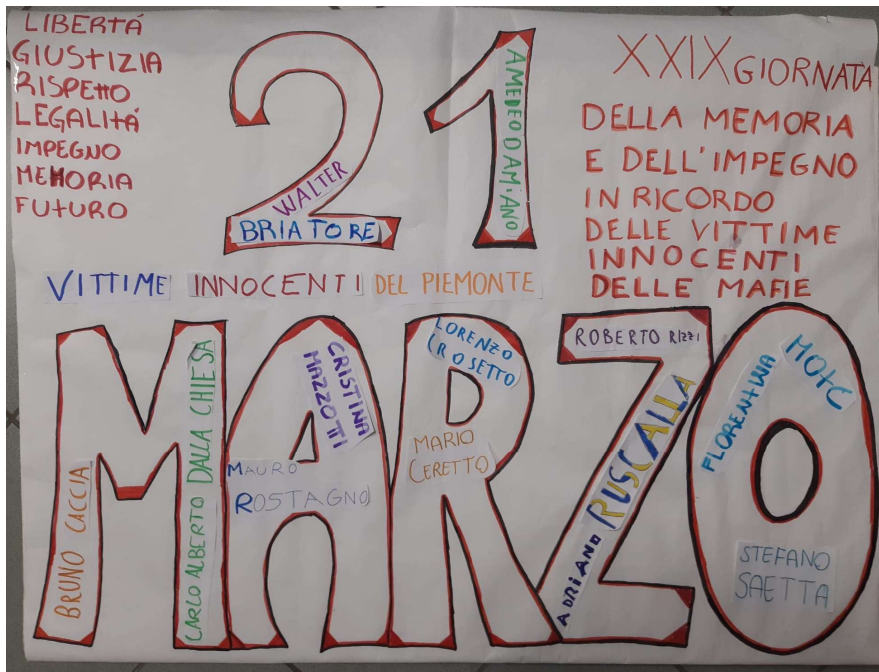 LIBERTÁ
GIUSTIZIA
RISPETTO
LEGALITÁ
IMPEGNO
MEMORIA
FUTURO
21
WALTER
BRIATORE
AMEDEO DAMIANO
XXIX GIORNATA
DELLA MEMORIA
E DELL'IMPEGNO
IN RICORDO
DELLE VITTIME
INNOCENTI
DELLE MAFIE
VITTIME INNOCENTI DEL PIEMONTE
MARZO
BRUNO CACCIA
CARLO ALBERTO DALLA CHIESA
CRISTINA
MAZZOTTI
MAURO
ROSTAGNO
LORENZO
CROSETTO
MARIO
CERETTO
ROBERTO RIZZI
ADRIANO RUSCALLA
FLORENTINA
MOTC
STEFANO
SAETTA